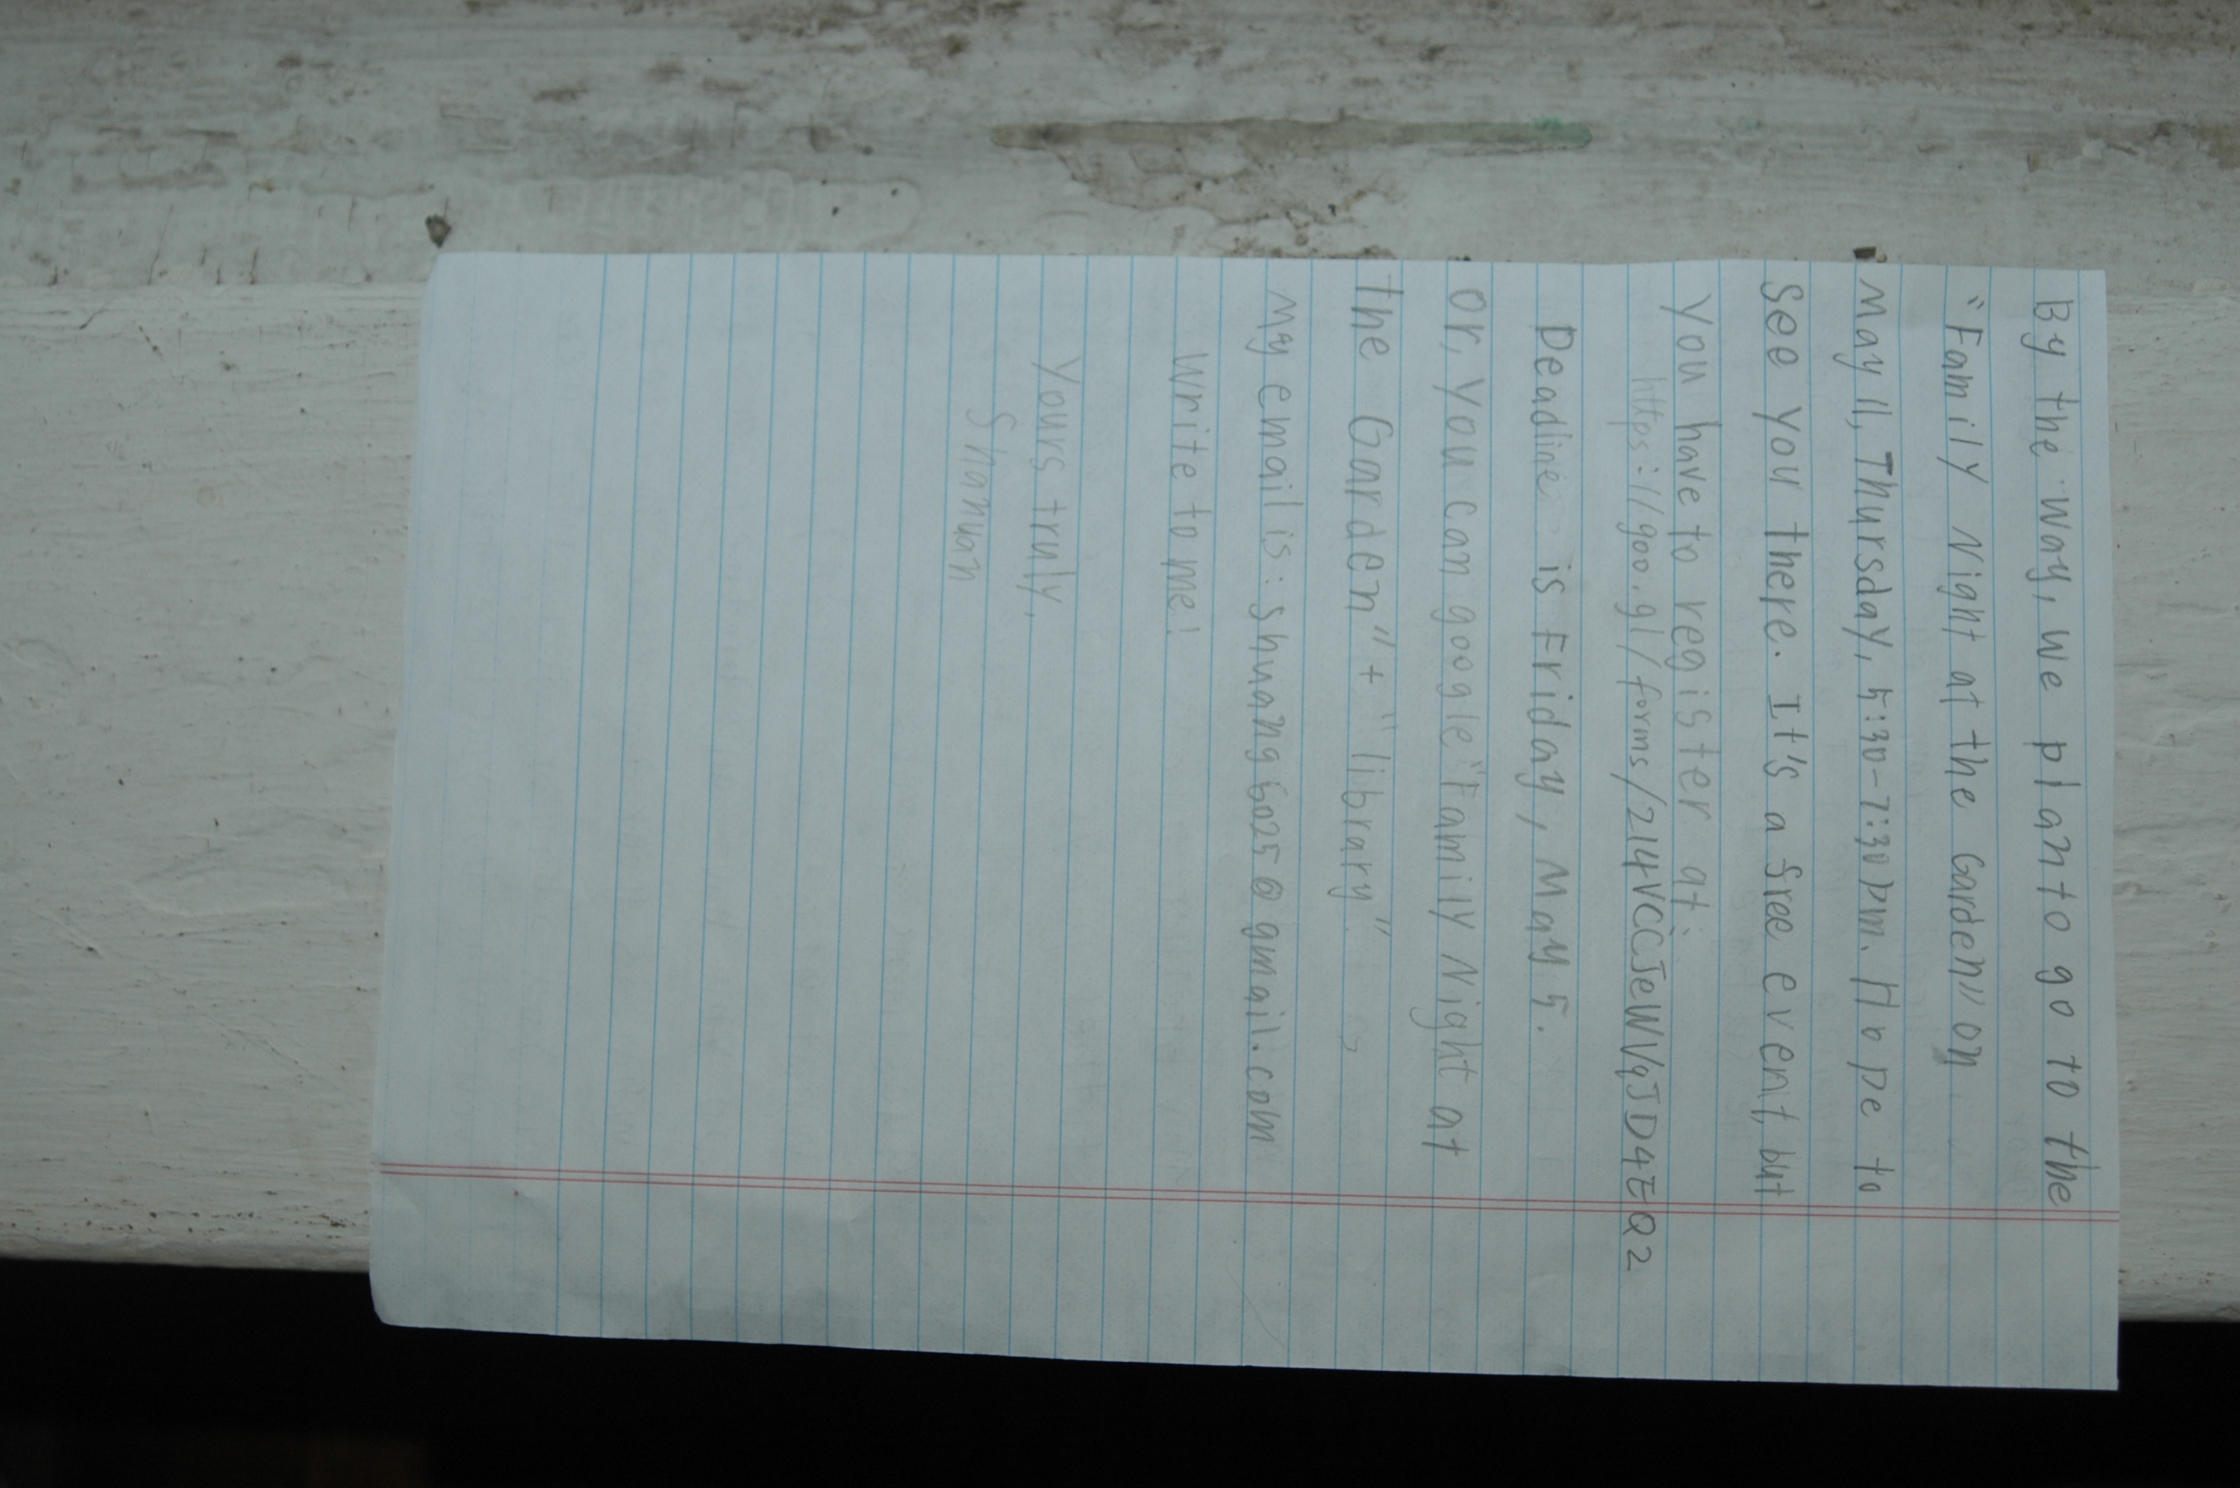 By the way, we plan to go to the
"Family Night at the Garden" on
May 11, Thursday, 5:30-7:30 pm. Hope to
See you there. It's a free event, but
You have to register at:
https://goo.gl/forms/214VCCJeWVqJD4EQ2
Deadline is Friday, May 5.
Or, you can google "Family Night at
the Garden" + "library".
My email is: shuang6025@gmail.com
Write to me!
Yours truly,
Shanuan